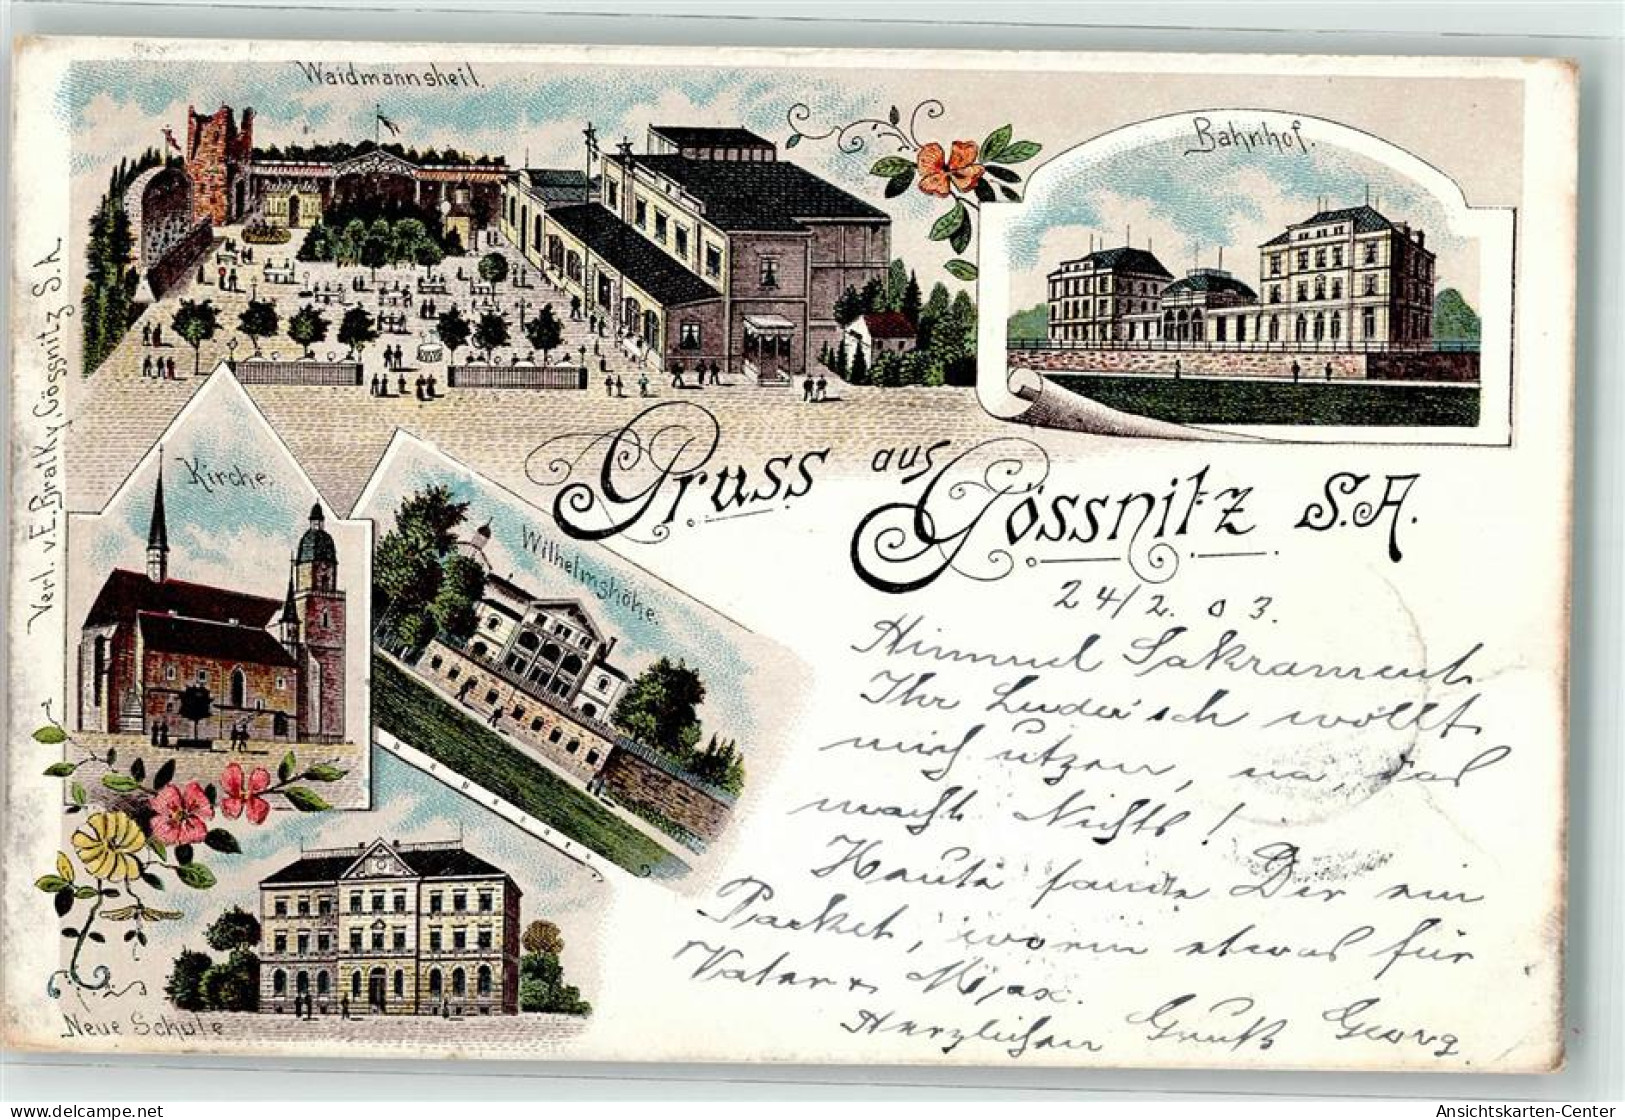 Waidmannsheil.
Bahnhof.
Kirche.
Wilhelmshöhe.
Verl. v. E. Bratky, Gössnitz S.A.
Gruss aus Gössnitz S.A.
24/2. 03.
Himmel Sakrament
Ihr Luder ich wollt
mich utzen, na das
macht Nichts!
Heute sandte Dir ein
Packet, worin etwas für
Vater & Max.
Herzlichen Gruß Georg.
Neue Schule
Ansichtskarten-Center